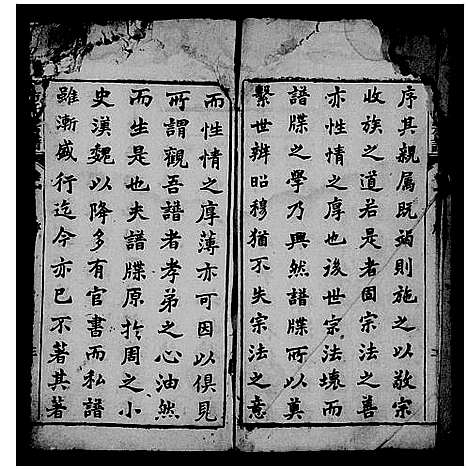 序其親属既竭則施之以敬宗
收族之道若是者固宗法之善
亦性情之厚也後世宗法壞而
譜牒之學乃興然譜牒所以奠
繫世辨昭穆猶不失宗法之意
而性情之厚薄亦可因以俱見
所謂觀吾譜者孝弟之心油然
而生是也夫譜牒原扵周之小
史漢魏以降多有官書而私譜
雖漸盛行迄今亦已不著其著